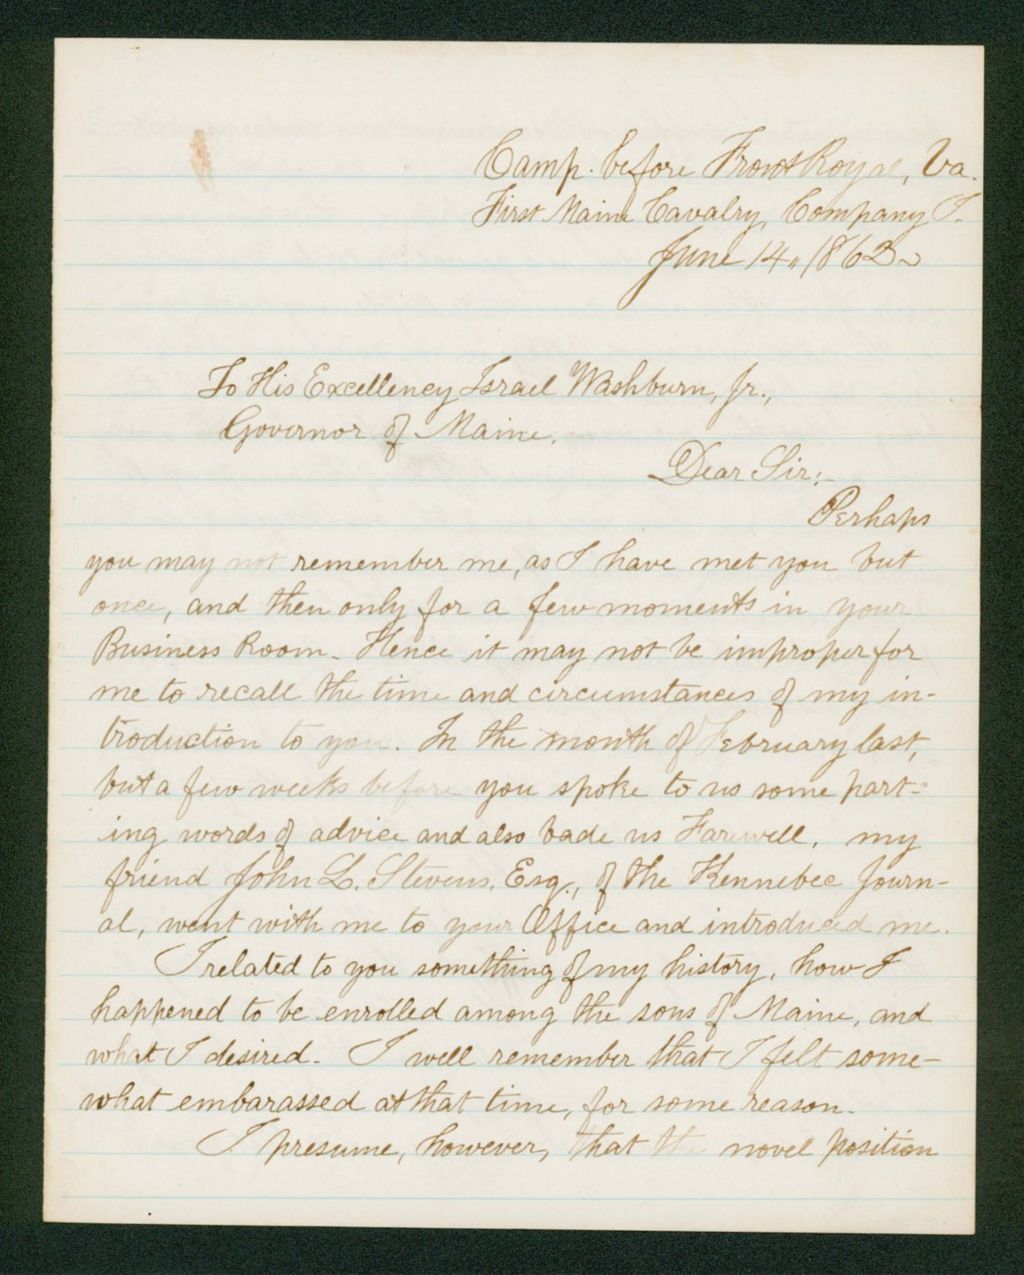 Camp before Front Royal, Va.
First Maine Cavalry, Company I.
June 14, 1862.
To His Excellency Israel Washburn, Jr.,
Governor of Maine.
Dear Sir:
Perhaps
you may not remember me, as I have met you but
once, and then only for a few moments in your
Business Room. Hence it may not be improper for
me to recall the time and circumstances of my in-
troduction to you. In the month of February last,
but a few weeks before you spoke to us some part-
ing words of advice and also bade us Farewell, my
friend John L. Stevens, Esq., of the Kennebec Journ-
al, went with me to your Office and introduced me.
I related to you something of my history, how I
happened to be enrolled among the sons of Maine, and
what I desired. I well remember that I felt some-
what embarassed at that time, for some reason.
I presume, however, that the novel position